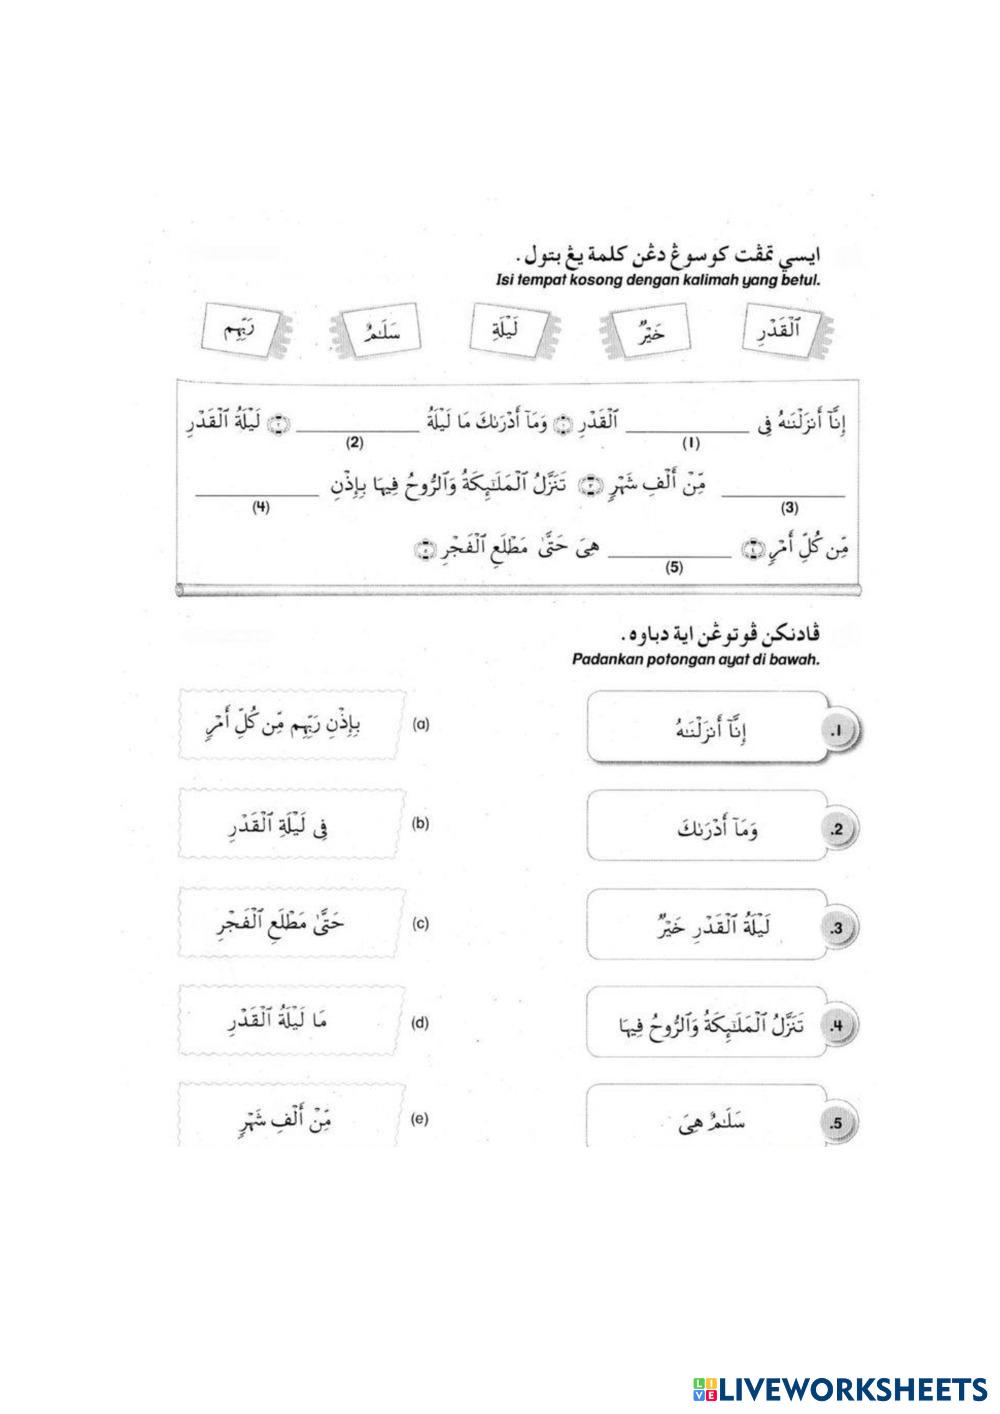 ايسي تمڤت كوسوڠ دڠن كلمة يڠ بتول.
Isi tempat kosong dengan kalimah yang betul.
ٱلْقَدْرِ
خَيْرٌ
لَيْلَةِ
سَلَٰمٌ
رَبِّهِم
إِنَّآ أَنزَلْنَٰهُ فِى ____________ ٱلْقَدْرِ ١ وَمَآ أَدْرَىٰكَ مَا لَيْلَةُ ____________ ٢ لَيْلَةُ ٱلْقَدْرِ
(1) (2)
____________ مِّنْ أَلْفِ شَهْرٍ ٣ تَنَزَّلُ ٱلْمَلَٰٓئِكَةُ وَٱلرُّوحُ فِيهَا بِإِذْنِ ____________
(3) (4)
مِّن كُلِّ أَمْرٍ ٤ ____________ هِىَ حَتَّىٰ مَطْلَعِ ٱلْفَجْرِ ٥
(5)
ڤادنكن ڤوتوڠن اية دباوه.
Padankan potongan ayat di bawah.
1. إِنَّآ أَنزَلْنَٰهُ
(a) بِإِذْنِ رَبِّهِم مِّن كُلِّ أَمْرٍ
2. وَمَآ أَدْرَىٰكَ
(b) فِى لَيْلَةِ ٱلْقَدْرِ
3. لَيْلَةُ ٱلْقَدْرِ خَيْرٌ
(c) حَتَّىٰ مَطْلَعِ ٱلْفَجْرِ
4. تَنَزَّلُ ٱلْمَلَٰٓئِكَةُ وَٱلرُّوحُ فِيهَا
(d) مَا لَيْلَةُ ٱلْقَدْرِ
5. سَلَٰمٌ هِىَ
(e) مِّنْ أَلْفِ شَهْرٍ
LIVE LIVEWORKSHEETS